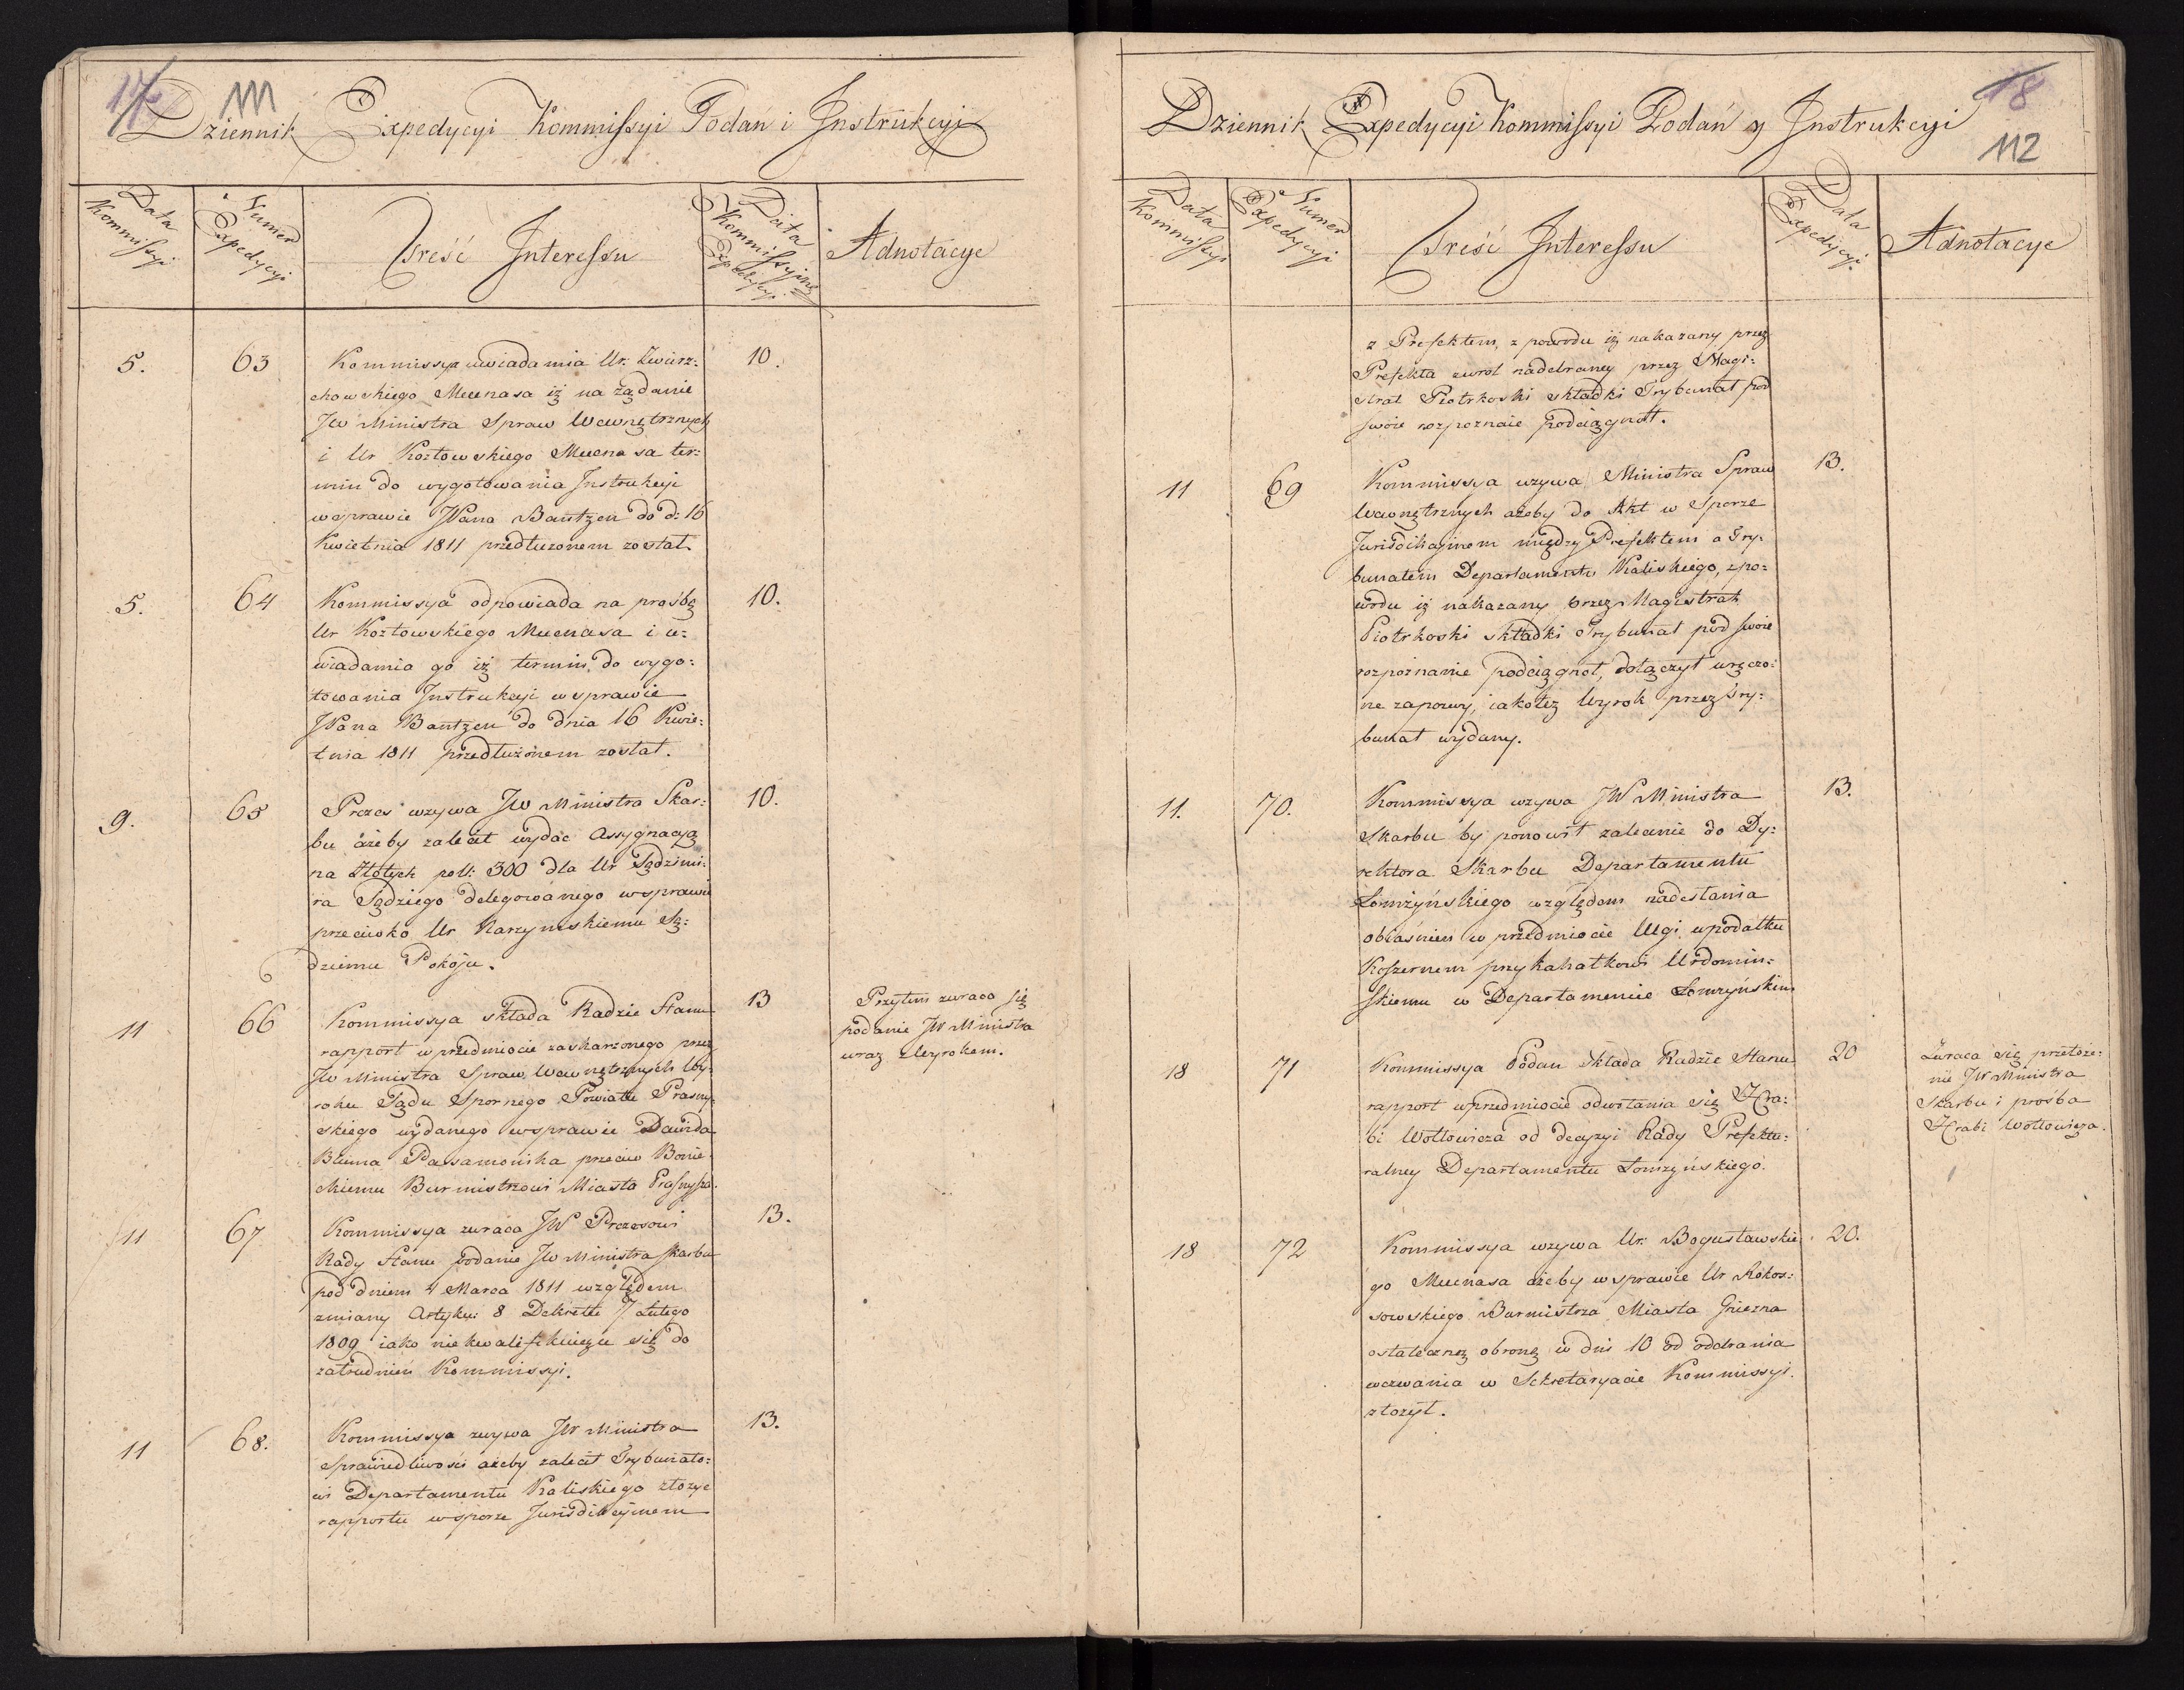 111
Dziennik Expedycyi Kommissyi Podań i Instrukcyi
Data Kommissyi
Numer Expedycyi
Treść Interessu
Data Kommissyine Expedycyi
Adnotacye
5.
63
10.
Kommissya uwiadamia Ur. Zwierz:
chowskiego Mecenasa iż na żądanie
JW Ministra Spraw Wewnętrznych
i Ur Kozłowskiego Mecenasa ter:
min do wygotowania Instrukcyi
w sprawie JPana Bantzen do d: 16
Kwietnia 1811 przedłużonem został.
5.
64
10.
Kommissya odpowiada na prośbę
Ur Kozłowskiego Mecenasa i u:
wiadamia go iż termin do wygo:
towania Instrukcyi w sprawie
JPana Bantzen do dnia 16 Kwie:
tnia 1811 przedłużonem został.
9.
65
10.
Prezes wzywa JW Ministra Skar:
bu ażeby zalecił wydać Assygnacyą
na Złotych pol: 300 dla Ur
Sędziego delegowanego w sprawie
przeciwko Ur Karzyńskiemu Sę:
dziemu Pokoju.
11
66
13
Kommissya składa Radzie Stanu
rapport w przedmiocie zaskarżonego przez
JW Ministra Spraw Wewnętrznych Wy:
roku Sądu Spornego Powiatu Prasny:
skiego wydanego w sprawie Dawida
Bluma Pasamonika przeciw Bonie
ckiemu Burmistrzowi Miasta Prasnysza.
Przytem zwraca się
podanie JW Ministra
wraz z Wyrokem.
11
67
13.
Kommissya zwraca JW Prezesowi
Rady Stanu podanie JW Ministra Skarbu
pod dniem 4 Marca 1811 względem
zmiany Artyku: 8 Dekretu 7 Lutego
1809 iako niekwalifikuiące się do
zatrudnień Kommissyi.
11
68.
13.
Kommissya wzywa JW Ministra
Sprawiedliwości ażeby zalecił Trybunało:
wi Departamentu Kaliskiego złożyć
rapportu w sporze Jurisdikcyjnem
18
112
Dziennik Expedycyi Kommissyi Podań y Instrukcyi
Data Kommissyi
Numer Expedycyi
Treść Interessu
Data Expedycyi.
Adnotacye
z Prefektem, z powodu iż nakazany przez
Prefekta zwrot nadebraney przez Magi:
strat Piotrkoski składki Trybunał pod
swoie rozpoznaie podciągnoł.
11
69
13.
Kommissya wzywa Ministra Spraw
Wewnętrznych ażeby do Akt w Sporze
Jurisdikcyjnem między Prefektem a Try:
bunałem Departamentu Kaliskiego, z po:
wodu iż nakazany przez Magistrat
Piotrkoski składki Trybunał pod swoie
rozpoznanie podciągnoł, dołączył wręczo:
ne zapozwy, iakoteż Wyrok przez Try:
bunał wydany.
11.
70.
13.
Kommissya wzywa JW Ministra
Skarbu by ponowił zalecenie do Dy:
rektora Skarbu Departamentu
Łomżyńskiego względem nadesłania
obiaśnień w przedmiocie Ulgi w podatku
Koszernem przykahałkowi Urdomin:
skiemu w Departamencie Łomżyńskim
18
71
20
Kommissya Podan składa Radzie Stanu
rapport w przedmiocie odwołania się Hra:
bi Wołłowicza od decyzyi Rady Prefektu:
ralney Departamentu Łomżyńskiego.
Zwraca się przełoże:
nie JW Ministra
Skarbu i prośba
Hrabi Wołłowicza.
18
72
20.
Kommissya wzywa Ur: Bogusławskie
go Mecenasa ażeby w sprawie Ur Rokos:
sowskiego Burmistrza Miasta Gniezna
ostateczną obronę w dni 10 od odebrania
wezwania w Sekretaryacie Kommissyi.
złożył.